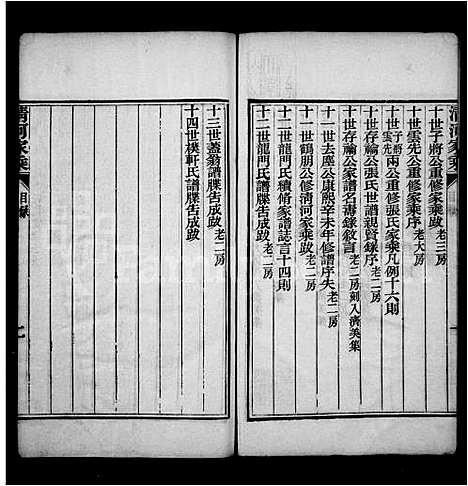 清河家乘
目錄
十世子將公重修家乘跋 老三房
十世雲先公重修家乘序 老大房
十世子將雲先兩公重修張氏家乘凡例十六則
十世存禴公張氏世譜親賢錄序 老二房
十世存禴公家譜名壽錄敘言 老二房刻入濟美集
十一世去塵公康熙辛未年修譜序失 老二房
十一世鶴朋公修清河家乘跋 老二房
十二世龍門氏續脩家譜誌言十四則
十二世龍門氏譜牒告成跋 老二房
十三世蓋翁譜牒告成跋 老二房
十四世樸軒氏譜牒告成跋
清河家乘
目錄
七